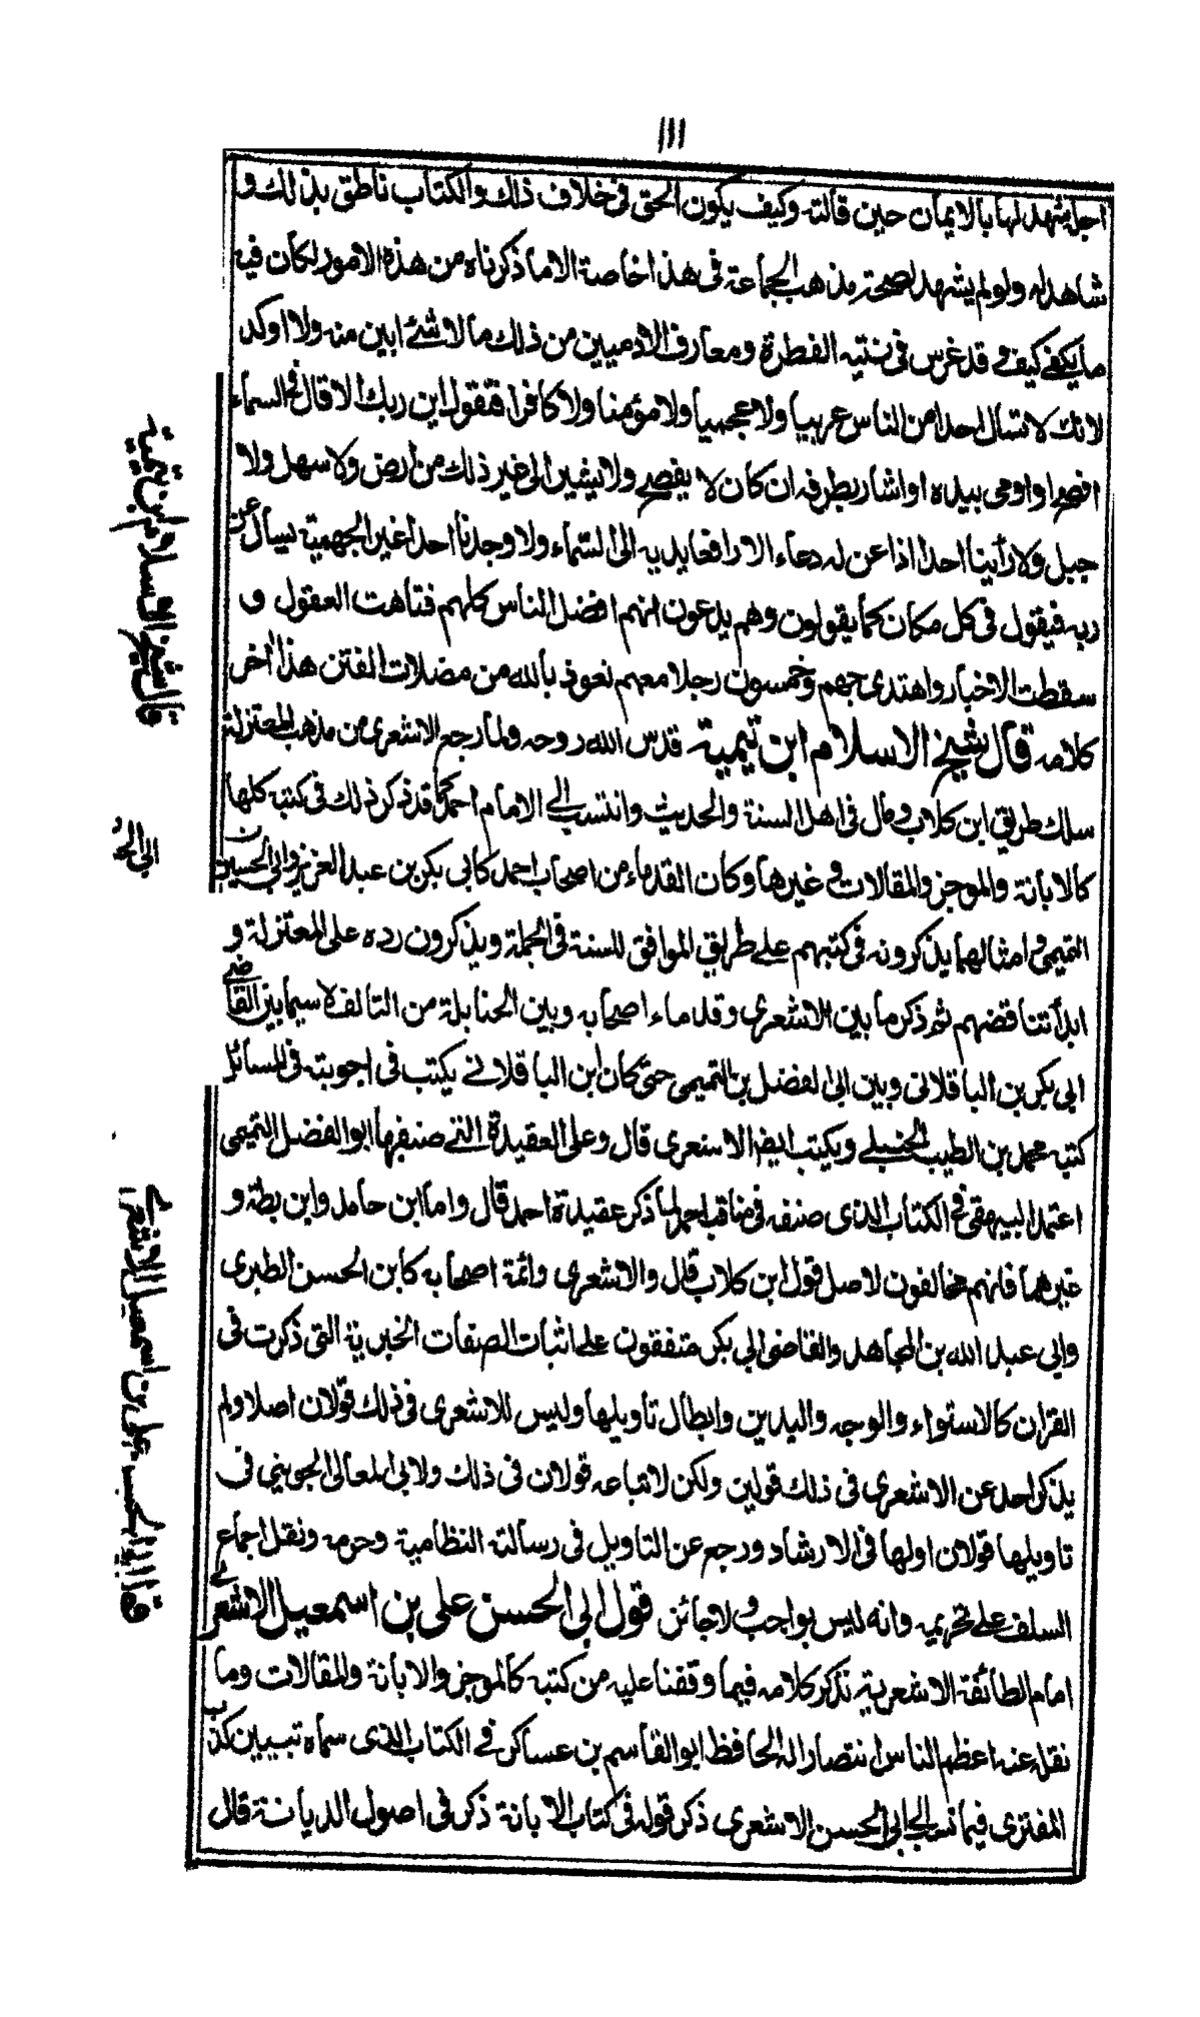 ١١١
اجل يشهد لها بالايمان حين قالته وكيف يكون الحق فى خلاف ذلك والكتاب ناطق بذلك و
شاهد له ولو لم يشهد لصحة مذهب الجماعة فى هذا خاصة الا ما ذكرناه من هذه الامور لكان فيه
ما يكفى كيف و قد غرس فى بنيه الفطرة ومعارف الادميين من ذلك ما لا شئ ابين منه ولا اوكد
لانك لا تسال احدا من الناس عربيا ولا عجميا ولا مؤمنا ولا كافرا فتقول اين ربك الا قال فى السماء
افصح او اومى بيده او اشار بطرفه ان كان لا يفصح ولا يشير الى غير ذلك من ارض ولا سهل ولا
جبل ولا رأينا احدا اذا عن له دعاء الا رافعا يديه الى السماء ولا وجدنا احدا غير الجهمية يسال عن
ربه فيقول فى كل مكان كما يقولون وهم يدعون انهم افضل الناس كلهم فتاهت العقول و
سقطت الاخبار واهتدى جهم وخمسون رجلا معهم نعوذ بالله من مضلات الفتن هذا اخر
كلامه قال شيخ الاسلام ابن تيمية قدس الله روحه ولما رجع الاشعرى من مذهب المعتزلة
سلك طريق ابن كلاب ومال فى اهل السنة والحديث وانتسب الى الامام احمد كما قد ذكر ذلك فى كتبه كلها
كالابانة والموجز والمقالات وغيرها وكان القدماء من اصحاب احمد كابى بكر بن عبد العزيز وابى الحسين
التميمى وامثالهما يذكرونه فى كتبهم على طريق الموافق للسنة فى الجملة ويذكرون رده على المعتزلة و
ابدا تناقضهم ثم ذكر ما بين الاشعرى وقدماء اصحابه وبين الحنابلة من التالف لا سيما بين القاضى
ابى بكر بن الباقلانى وبين ابى الفضل بن التميمى حتى كان ابن الباقلانى يكتب فى اجوبته فى المسائل
كتبه محمد بن الطيب الحنبلى ويكتب ايضا الاشعرى قال وعلى العقيدة التى صنفها ابو الفضل التميمى
اعتمد البيهقى فى الكتاب الذى صنفه فى مناقب احمد لما ذكر عقيدة احمد قال واما ابن حامد وابن بطة و
غيرهما فانهم مخالفون لاصل قول ابن كلاب قال والاشعرى وائمة اصحابه كابن الحسن الطبرى
وابى عبد الله بن المجاهد والقاضى ابى بكر متفقون على اثبات الصفات الخبرية التى ذكرت فى
القران كالاستواء والوجه واليدين وابطال تاويلها وليس للاشعرى فى ذلك قولان اصلا ولم
يذكر احد عن الاشعرى فى ذلك قولين ولكن لاتباعه قولان فى ذلك ولابى المعالى الجوينى فى
تاويلها قولان اولها فى الارشاد ورجع عن التاويل فى رسالته النظامية وحرمه ونقل اجماع
السلف على تحريمه وانه ليس بواجب ولا جائز قول ابى الحسن على بن اسمعيل الاشعرى
امام الطائفة الاشعرية نذكر كلامه فيما وقفنا عليه من كتبه كالموجز والابانة والمقالات وما
نقله عنه اعظم الناس انتصارا له الحافظ ابو القاسم بن عساكر فى الكتاب الذى سماه تبيين كذب
المفترى فيما نسب الى ابى الحسن الاشعرى ذكر قوله فى كتاب الابانة ذكر فى اصول الديانة قال
قال شيخ الاسلام ابن تيمية
قول ابى الحسن على بن اسمعيل الاشعرى